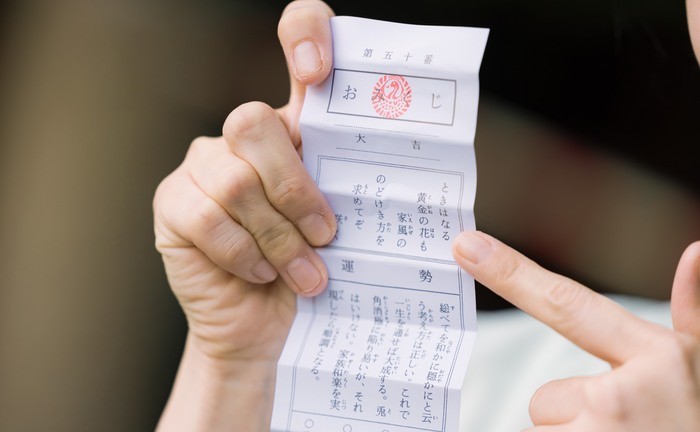 第五十番
おみくじ
大吉
ときはなる
黄金の花も
家風の
のどけき方を
求めてぞ
運勢
総べてを和かに穏かにと云
う考え方は正しい。これで
一生を通せば大成する。兎
角消極に陥り易いが、それ
はいけない。家族和楽を実
現したら順調となる。